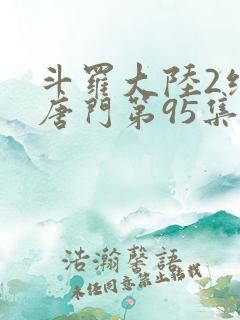 斗羅大陸2
唐門第95集
浩瀚馨語
未經同意禁止轉載